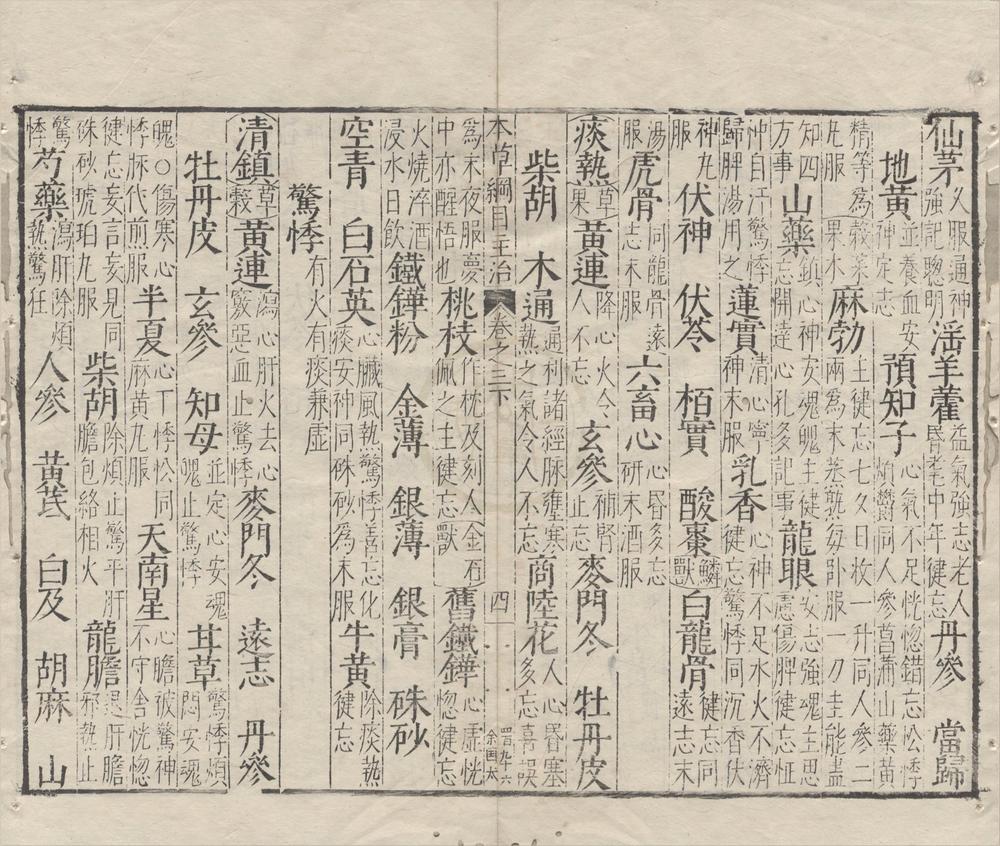 仙茅久服通神強記聰明淫羊藿益氣強志老人昏耄中年健忘丹參 當歸
地黃並養血安神定志預知子心氣不足恍惚錯忘忪悸煩鬱同人參菖蒲山藥黃
精等為丸服穀菜果木麻勃主健忘七夕日收一升同人參二兩為末蒸熟每卧服一刀圭能盡
知四方事山藥鎮心神安魂魄主健忘開達心孔多記事龍眼安志強魂主思慮傷脾健忘怔
忡自汗驚悸歸脾湯用之蓮實清心寧神末服乳香心神不足水火不濟健忘驚悸同沉香伏
神丸服伏神 伏苓 栢實 酸棗鱗獸白龍骨健忘同遠志末
湯服虎骨同龍骨遠志末服六畜心心昏多忘研末酒服
痰熱草果黃連降心火令人不忘玄參補腎止忘麥門冬 牡丹皮
柴胡 木通通利諸經脉壅寒熱之氣令人不忘商陸花人心昏塞多忘喜誤
本草綱目主治 卷之三下 四
為末夜服夢中亦醒悟也桃枝作枕及刻人佩之主健忘金石獸舊鐵鏵心虛恍惚健忘
火燒淬酒浸水日飲鐵鏵粉 金薄 銀薄 銀膏 硃砂
空青 白石英心臟風熱驚悸善忘化痰安神同硃砂為末服牛黃除痰熱健忘
驚悸有火有痰兼虛
清鎮草穀黃連瀉心肝火去心竅惡血止驚悸麥門冬 遠志 丹參
牡丹皮 玄參 知母並定心安魂魄止驚悸甘草驚悸煩悶安魂
魄○傷寒心悸脉代煎服半夏心下悸忪同麻黃丸服天南星心膽被驚神不守舍恍惚
健忘妄言妄見同硃砂琥珀丸服柴胡除煩止驚平肝膽包絡相火龍膽退肝膽邪熱止
驚悸芍藥瀉肝除煩熱驚狂人參 黃芪 白及 胡麻 山